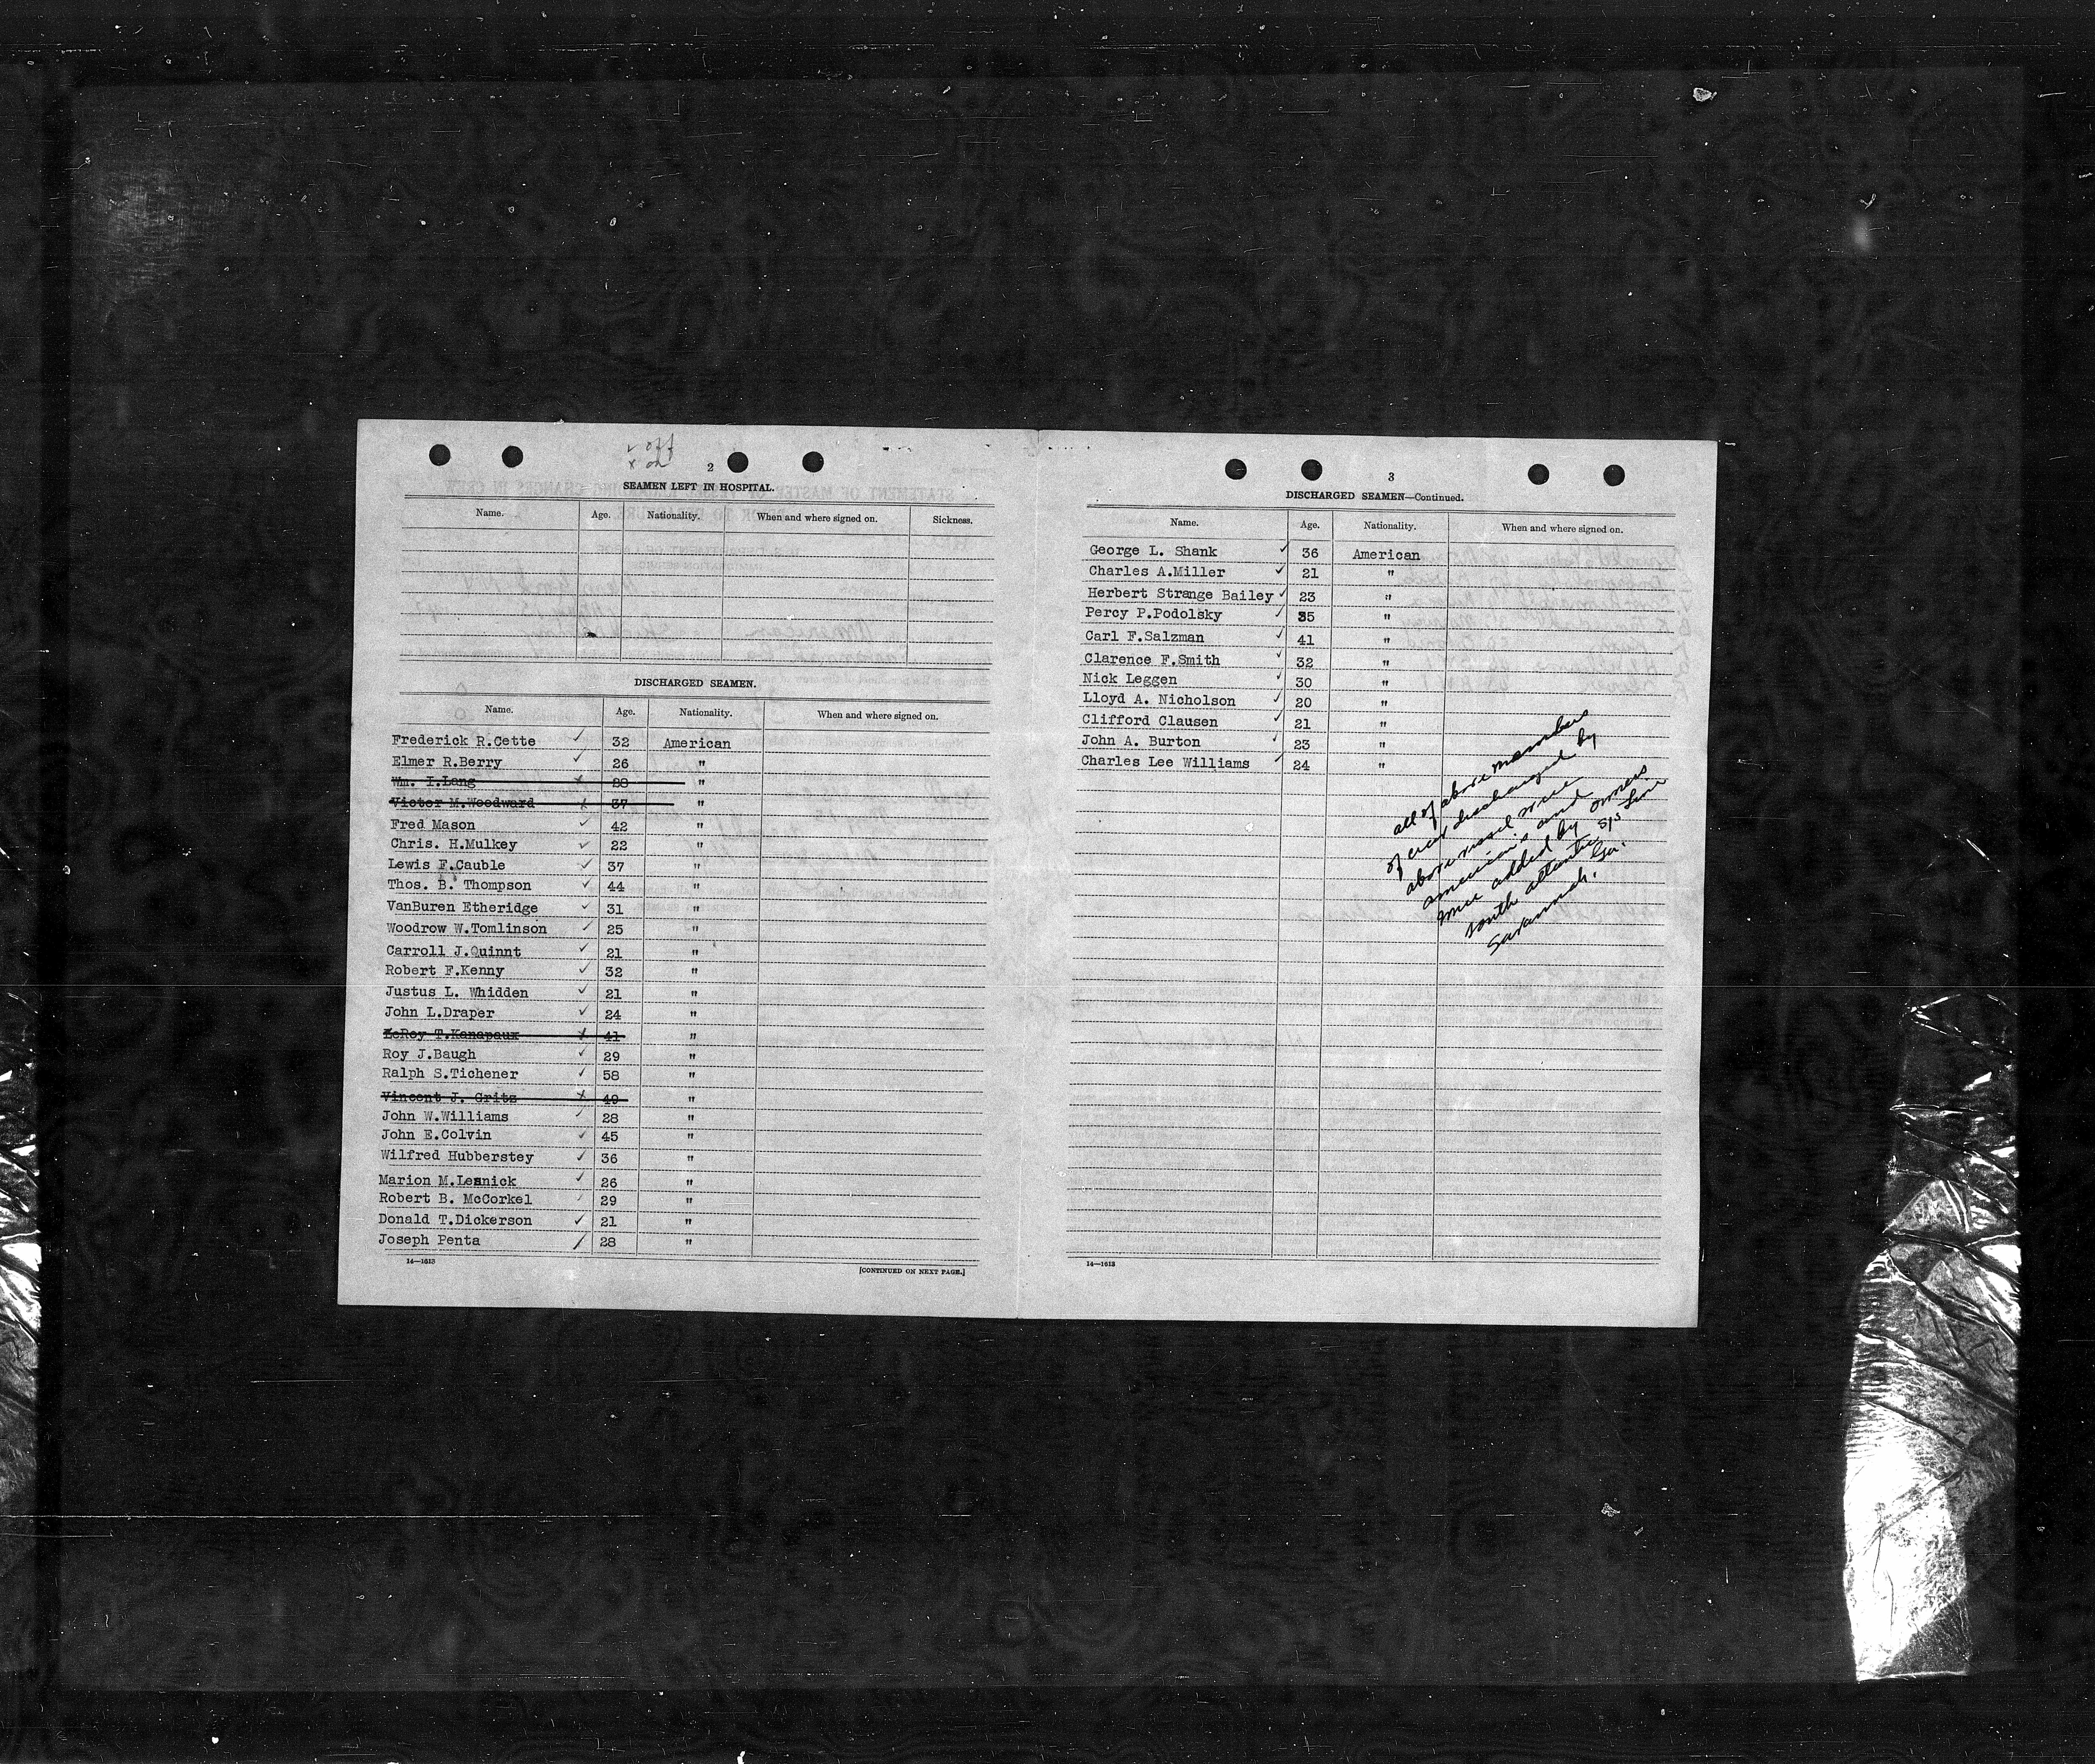 ✓ off
x on
2
SEAMEN LEFT IN HOSPITAL.
Name. Age. Nationality. When and where signed on. Sickness.
DISCHARGED SEAMEN.
Name. Age. Nationality. When and where signed on.
Frederick R.Cette ✓ 32 American
Elmer R.Berry ✓ 26 "
Wm. I.Lang x 28 "
Victor M.Woodward x 37 "
Fred Mason ✓ 42 "
Chris. H.Mulkey ✓ 22 "
Lewis F.Cauble ✓ 37 "
Thos. B. Thompson ✓ 44 "
VanBuren Etheridge ✓ 31 "
Woodrow W.Tomlinson ✓ 25 "
Carroll J.Quinnt ✓ 21 "
Robert F.Kenny ✓ 32 "
Justus L. Whidden ✓ 21 "
John L.Draper ✓ 24 "
LeRoy T.Kanapaux x 41 "
Roy J.Baugh ✓ 29 "
Ralph S.Tichener ✓ 58 "
Vincent J. Gritz x 49 "
John W.Williams ✓ 28 "
John E.Colvin ✓ 45 "
Wilfred Hubberstey ✓ 36 "
Marion M.Lesnick ✓ 26 "
Robert B. McCorkel ✓ 29 "
Donald T.Dickerson ✓ 21 "
Joseph Penta ✓ 28 "
14—1613
[CONTINUED ON NEXT PAGE.]
3
DISCHARGED SEAMEN—Continued.
Name. Age. Nationality. When and where signed on.
George L. Shank ✓ 36 American
Charles A.Miller ✓ 21 "
Herbert Strange Bailey ✓ 23 "
Percy P.Podolsky ✓ 35 "
Carl F.Salzman ✓ 41 "
Clarence F.Smith ✓ 32 "
Nick Leggen ✓ 30 "
Lloyd A. Nicholson ✓ 20 "
Clifford Clausen ✓ 21 "
John A. Burton ✓ 23 "
Charles Lee Williams ✓ 24 "
all of above members
of crew discharged by
above vessel were
american's and
were added by owners
south atlantic S/S Line
Savannah. Ga.
14—1613